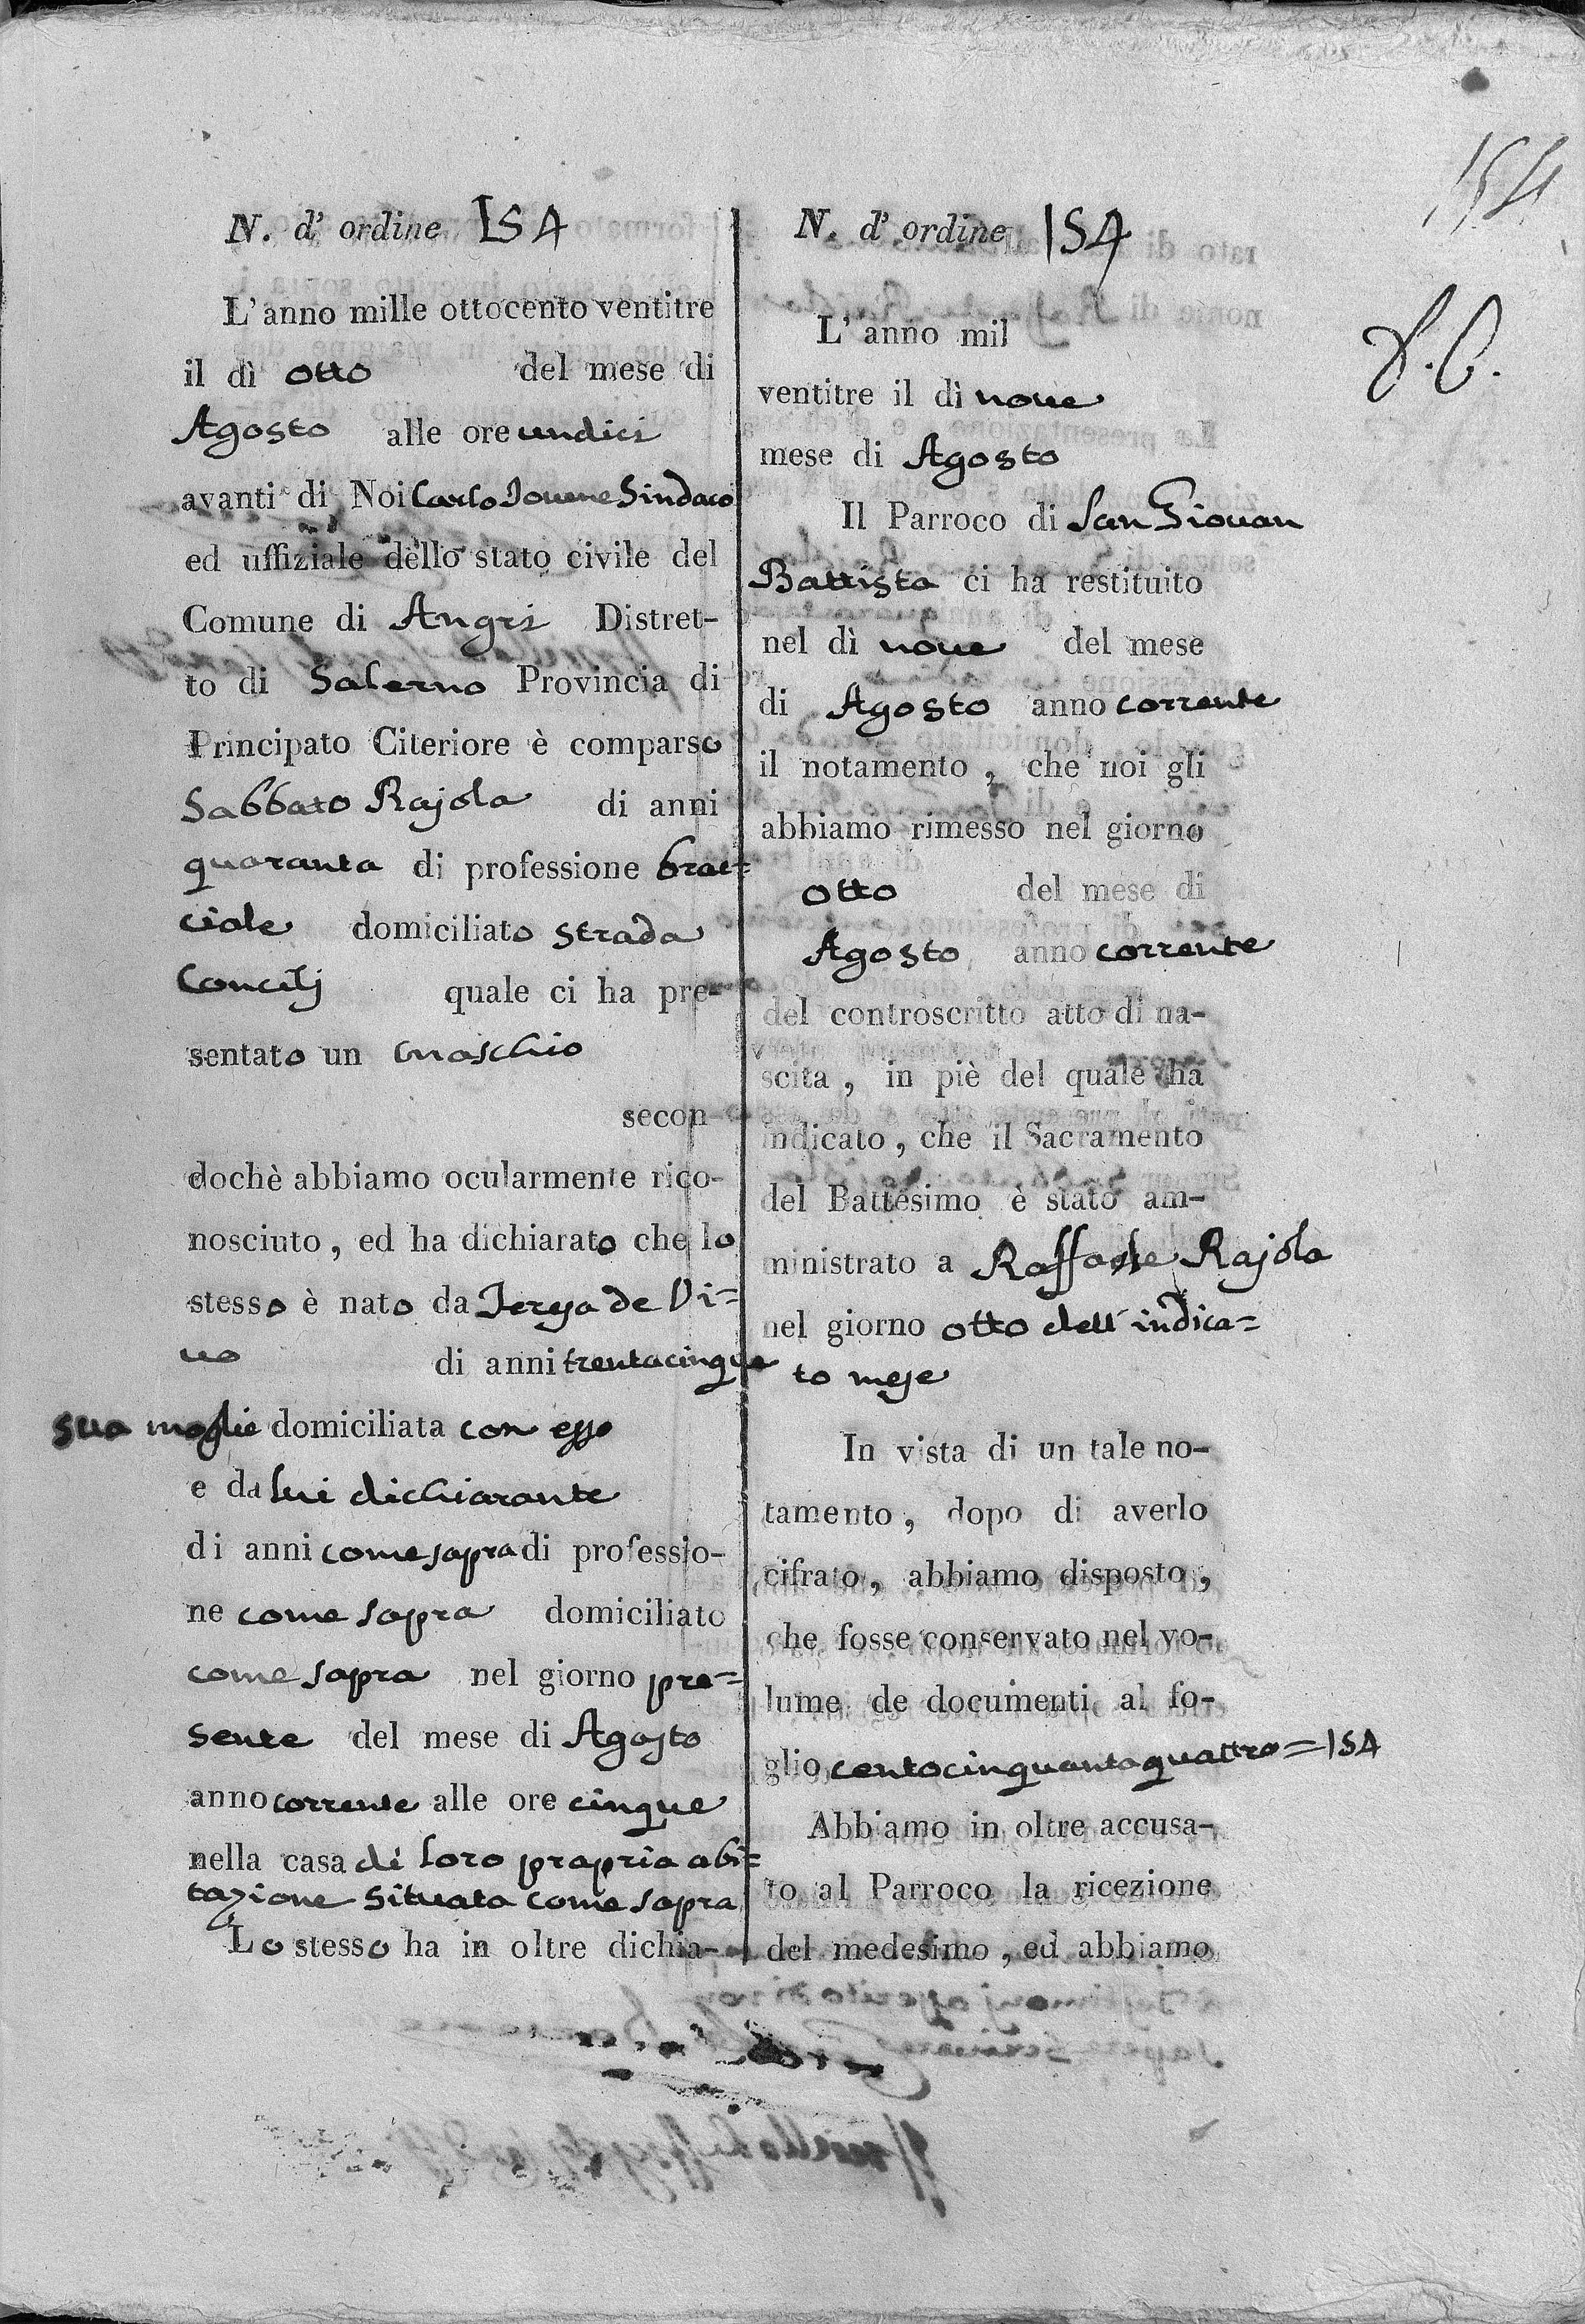 154
N. d' ordine 154
L' anno mille ottocento ventitre
il dì otto del mese di
Agosto alle ore undici
avanti di Noi Carlo Iovene Sindaco
ed uffiziale dello stato civile del
Comune di Angri Distret-
to di Salerno Provincia di
Principato Citeriore è comparso
Sabbato Rajola di anni
quaranta di professione brac=
ciale domiciliato strada
Concilj quale ci ha pre-
sentato un maschio
secon-
dochè abbiamo ocularmente rico-
nosciuto, ed ha dichiarato che lo
stesso è nato da Teresa de Vi=
vo di anni trentacinque
sua moglie domiciliata con esso
e da lui dichiarante
di anni come sopra di professio-
ne come sopra domiciliato
come sopra nel giorno pre=
sente del mese di Agosto
anno corrente alle ore cinque
nella casa di loro propria abi=
tazione situata come sopra
Lo stesso ha in oltre dichia-
N. d' ordine 154
L' anno mil
ventitre il dì nove
mese di Agosto
Il Parroco di San Giovan
Battista ci ha restituito
nel dì nove del mese
di Agosto anno corrente
il notamento, che noi gli
abbiamo rimesso nel giorno
otto del mese di
Agosto anno corrente
del controscritto atto di na-
scita, in piè del quale ha
indicato, che il Sacramento
del Battesimo è stato am-
ministrato a Raffaele Rajola
nel giorno otto dell' indica=
to mese
In vista di un tale no-
tamento, dopo di averlo
cifrato, abbiamo disposto,
che fosse conservato nel vo-
lume de documenti al fo-
glio centocinquantaquattro=154
Abbiamo in oltre accusa-
to al Parroco la ricezione
del medesimo, ed abbiamo